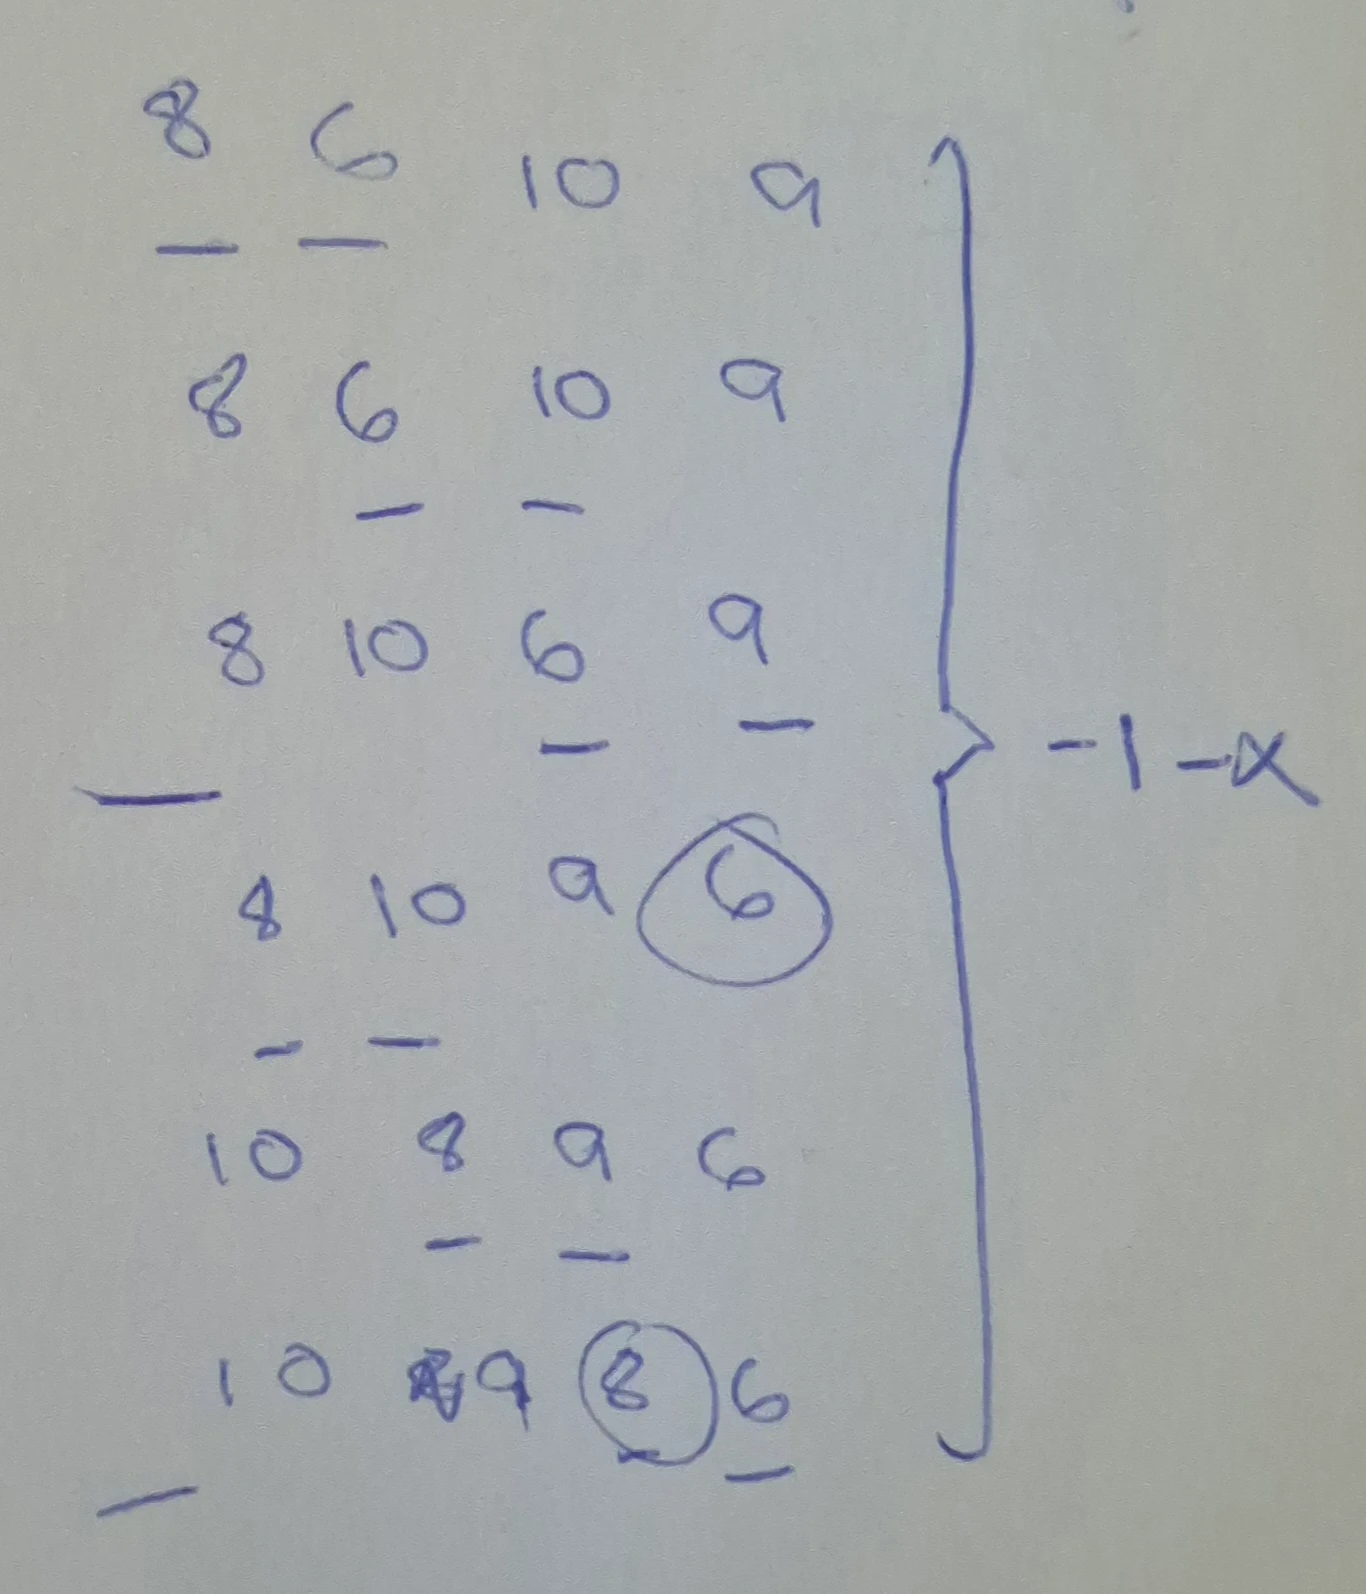 8 6 10 9
8 6 10 9
8 10 6 9
-1-x
8 10 9 6
10 8 9 6
10 9 8 6